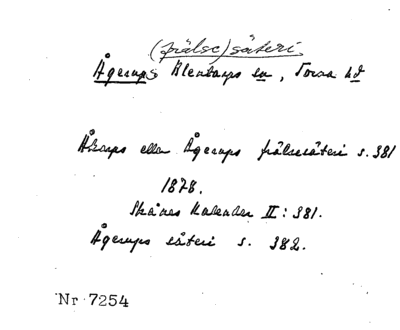 (frälse)säteri
Ågerups Alentorps sn, Torna hd
Åkarps eller Ågerups frälsesäteri s. 381
1878.
Skånes Kalender II: 381.
Ågerups säteri s. 382.
Nr 7254